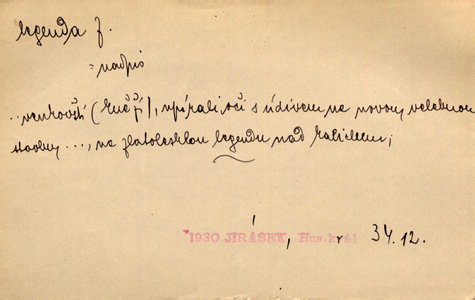 legenda f.
= nadpis
.. venkovští (kněží), upírali oči s údivem na novou velebnou
stavbu ..., na zlatolesklou legendu nad kalichem;
1930 JIRÁSEK, Hus. král 34.12.